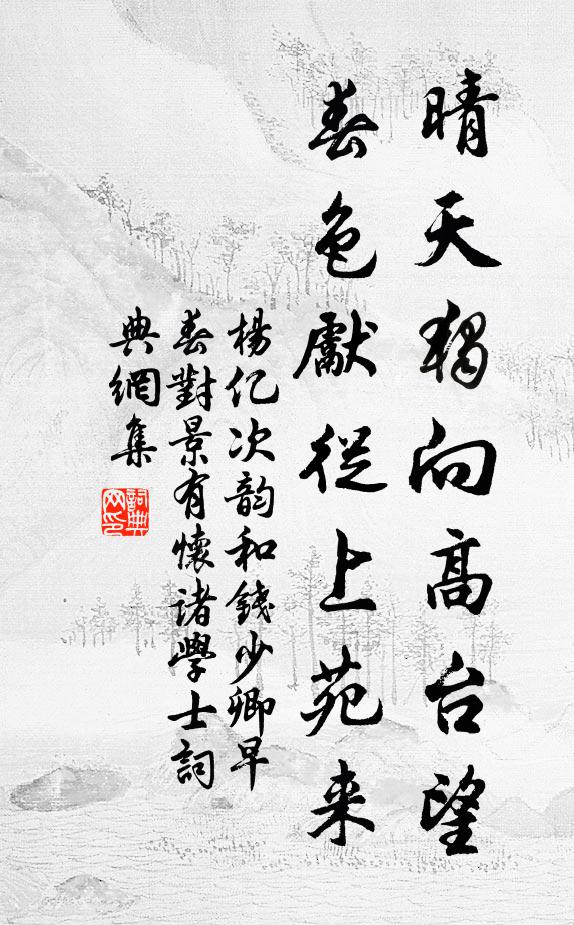 晴天獨向高台望
春色獻從上苑来
楊亿次韵和錢少卿早
春對景有懷诸學士詞
典網集
詞典网印